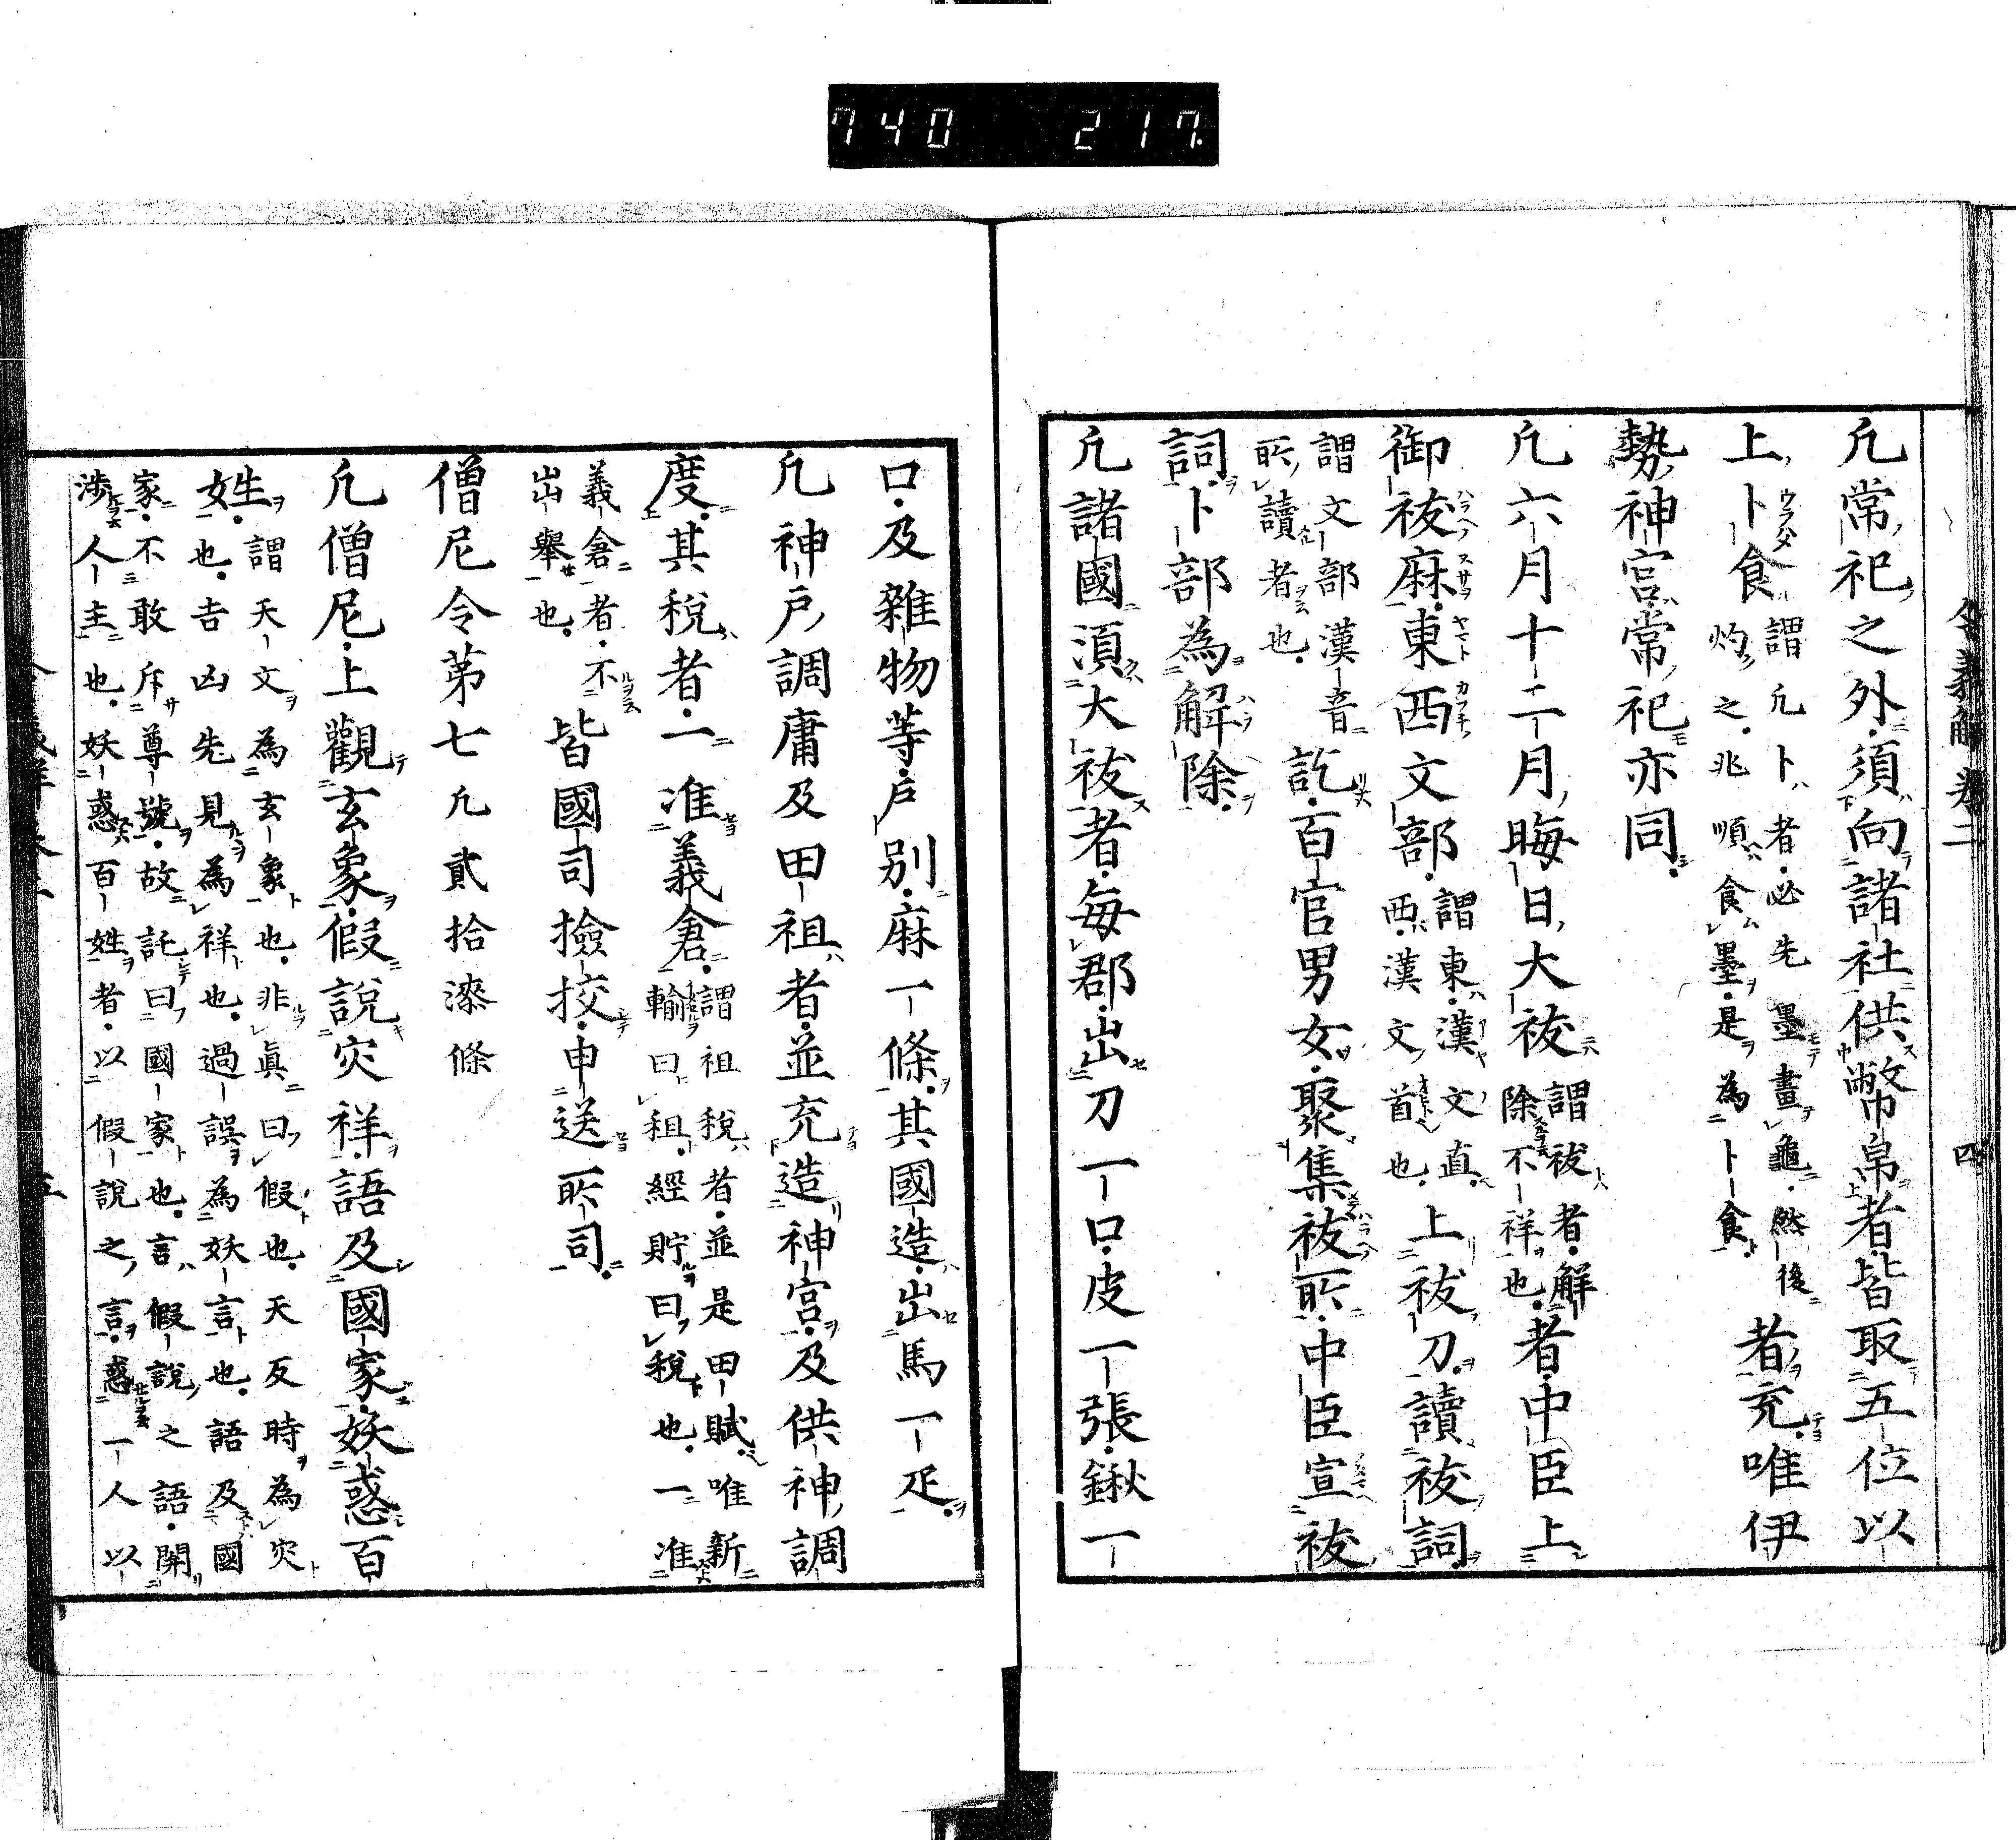 740 217
令義解卷二 四
凢常祀之外須向諸社供幣帛者皆取五位以
上卜食謂凢卜者必先墨畫龜然後灼之兆順食墨是為卜食者充唯伊
勢神宮常祀亦同
凢六月十二月晦日大祓謂祓者解除不祥也者中臣上
御祓麻東西文部謂東漢文直西漢文首也上祓刀讀祓詞
謂文部漢音所讀者也訖百官男女聚集祓所中臣宣祓
詞卜部為解除
凢諸國須大祓者每郡出刀一口皮一張鍬一
口及雜物等戶別麻一條其國造出馬一疋
凢神戶調庸及田租者並充造神宮及供神調
度其税者一准義倉謂租税者並是田賦唯新輸曰租經貯曰税也一准
義倉者不出舉也皆國司撿挍申送所司
僧尼令第七凢貳拾漆條
凢僧尼上觀玄象假說灾祥語及國家妖惑百
姓謂天文為玄象也非眞曰假也天反時為灾也吉凶先見為祥也過誤為妖言也語及國
家不敢斥尊號故託曰國家也言假說之語開涉人主也妖惑百姓者以假說之言惑一人以